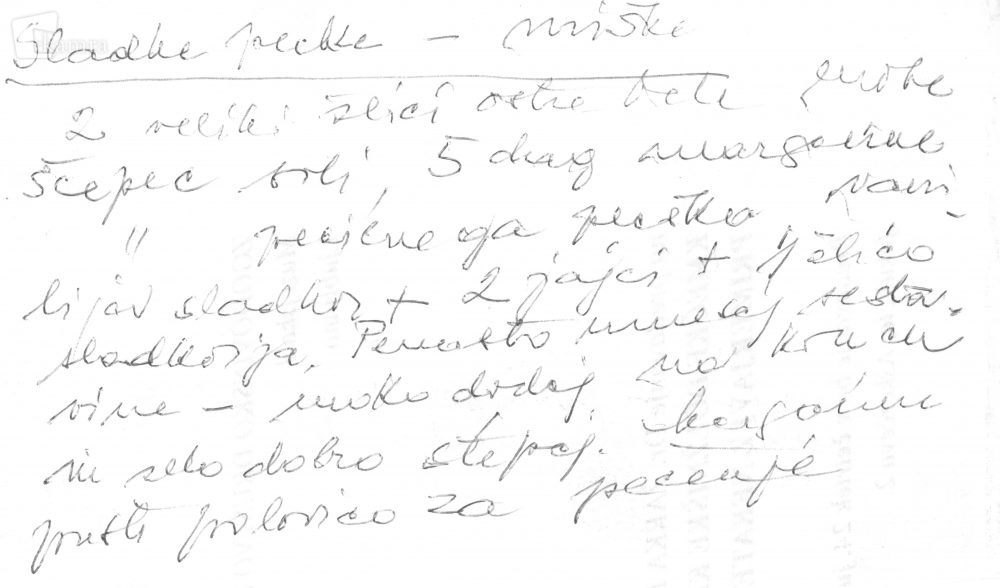 Sladke pecke - miške
2 veliki žlici ostre bele moke
Ščepec soli, 5 dkg margarine
" pecivnega praška, vani-
lijev sladkor + 2 jajci + 1 žlico
sladkorja. Penasto umešaj sesta-
vine - moko dodaj na koncu
in zelo dobro stepaj. Margarine
pusti polovico za pečenje